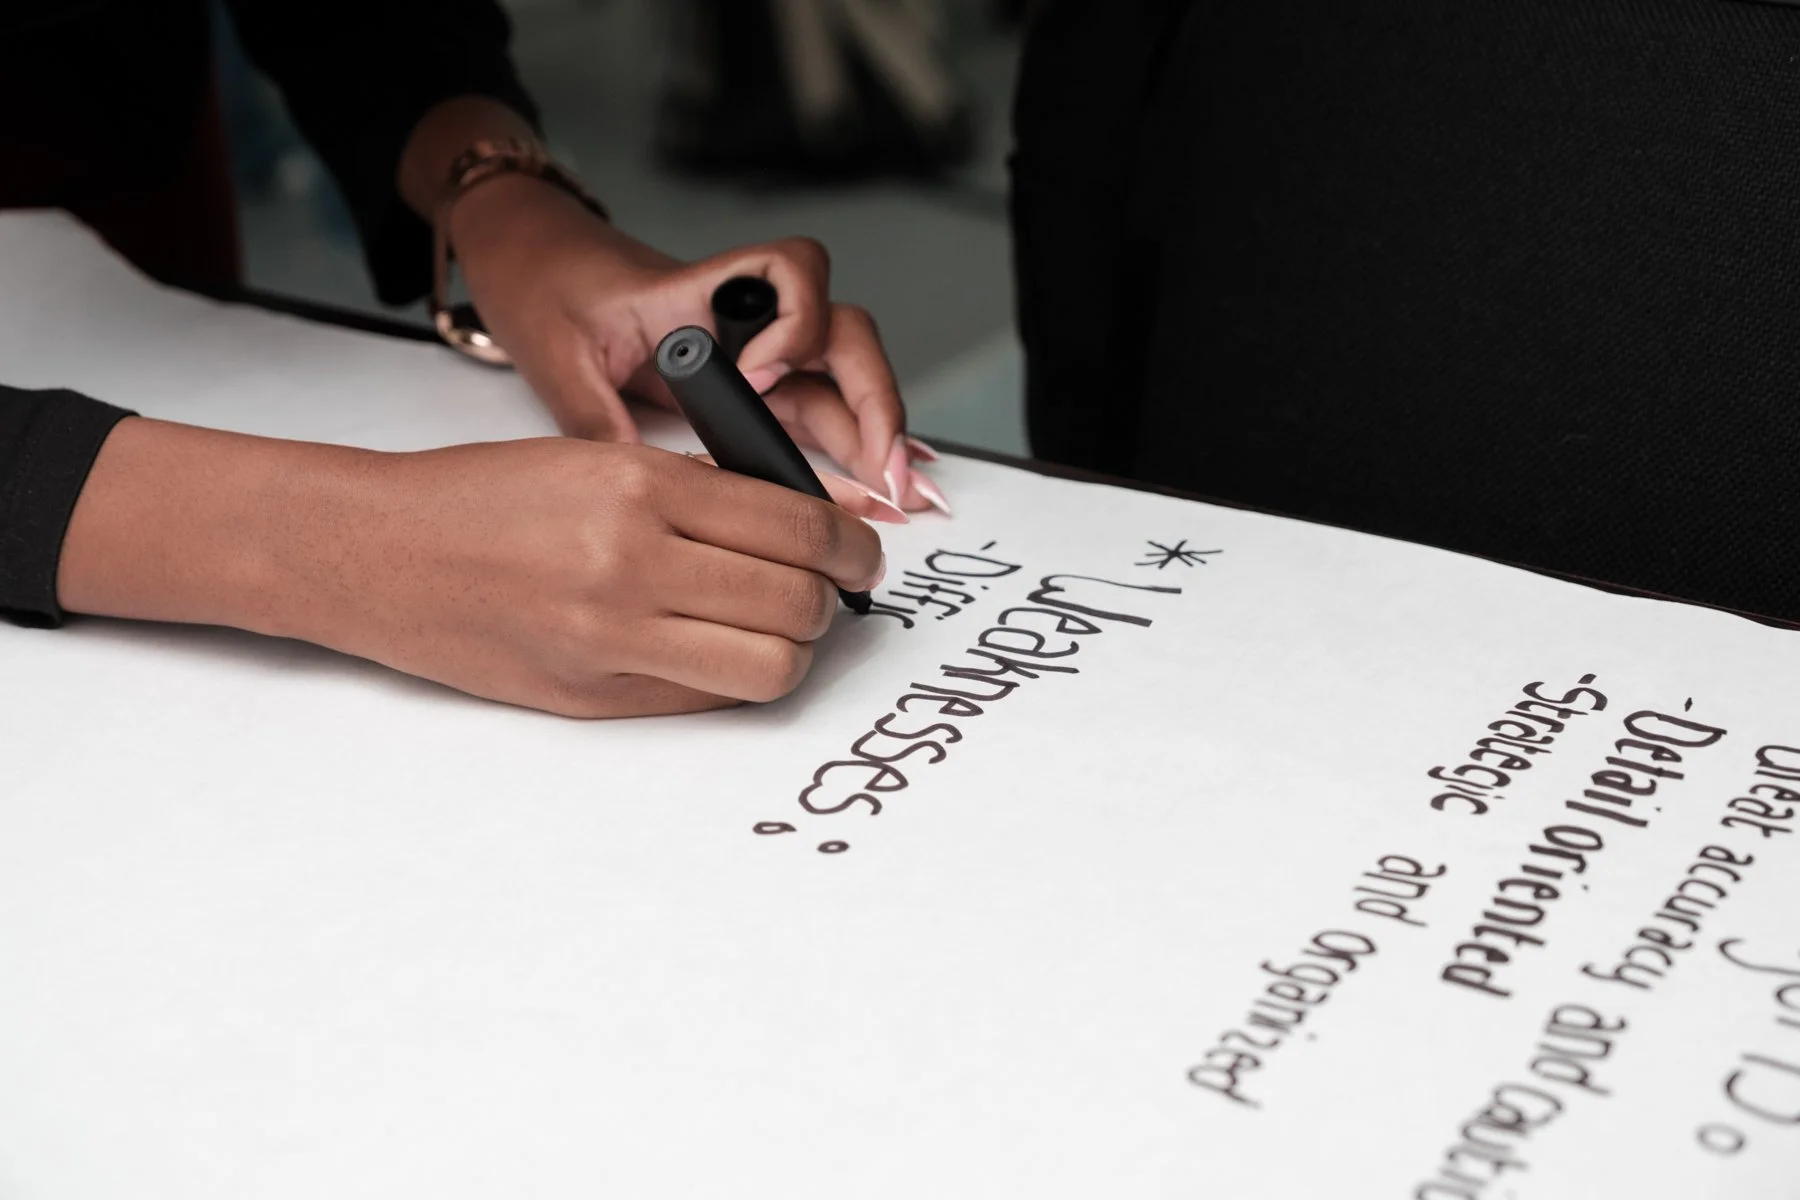 Great accuracy and Cauti
-Detail oriented
-Strategic and organized
*Weaknesses:
-Diffic